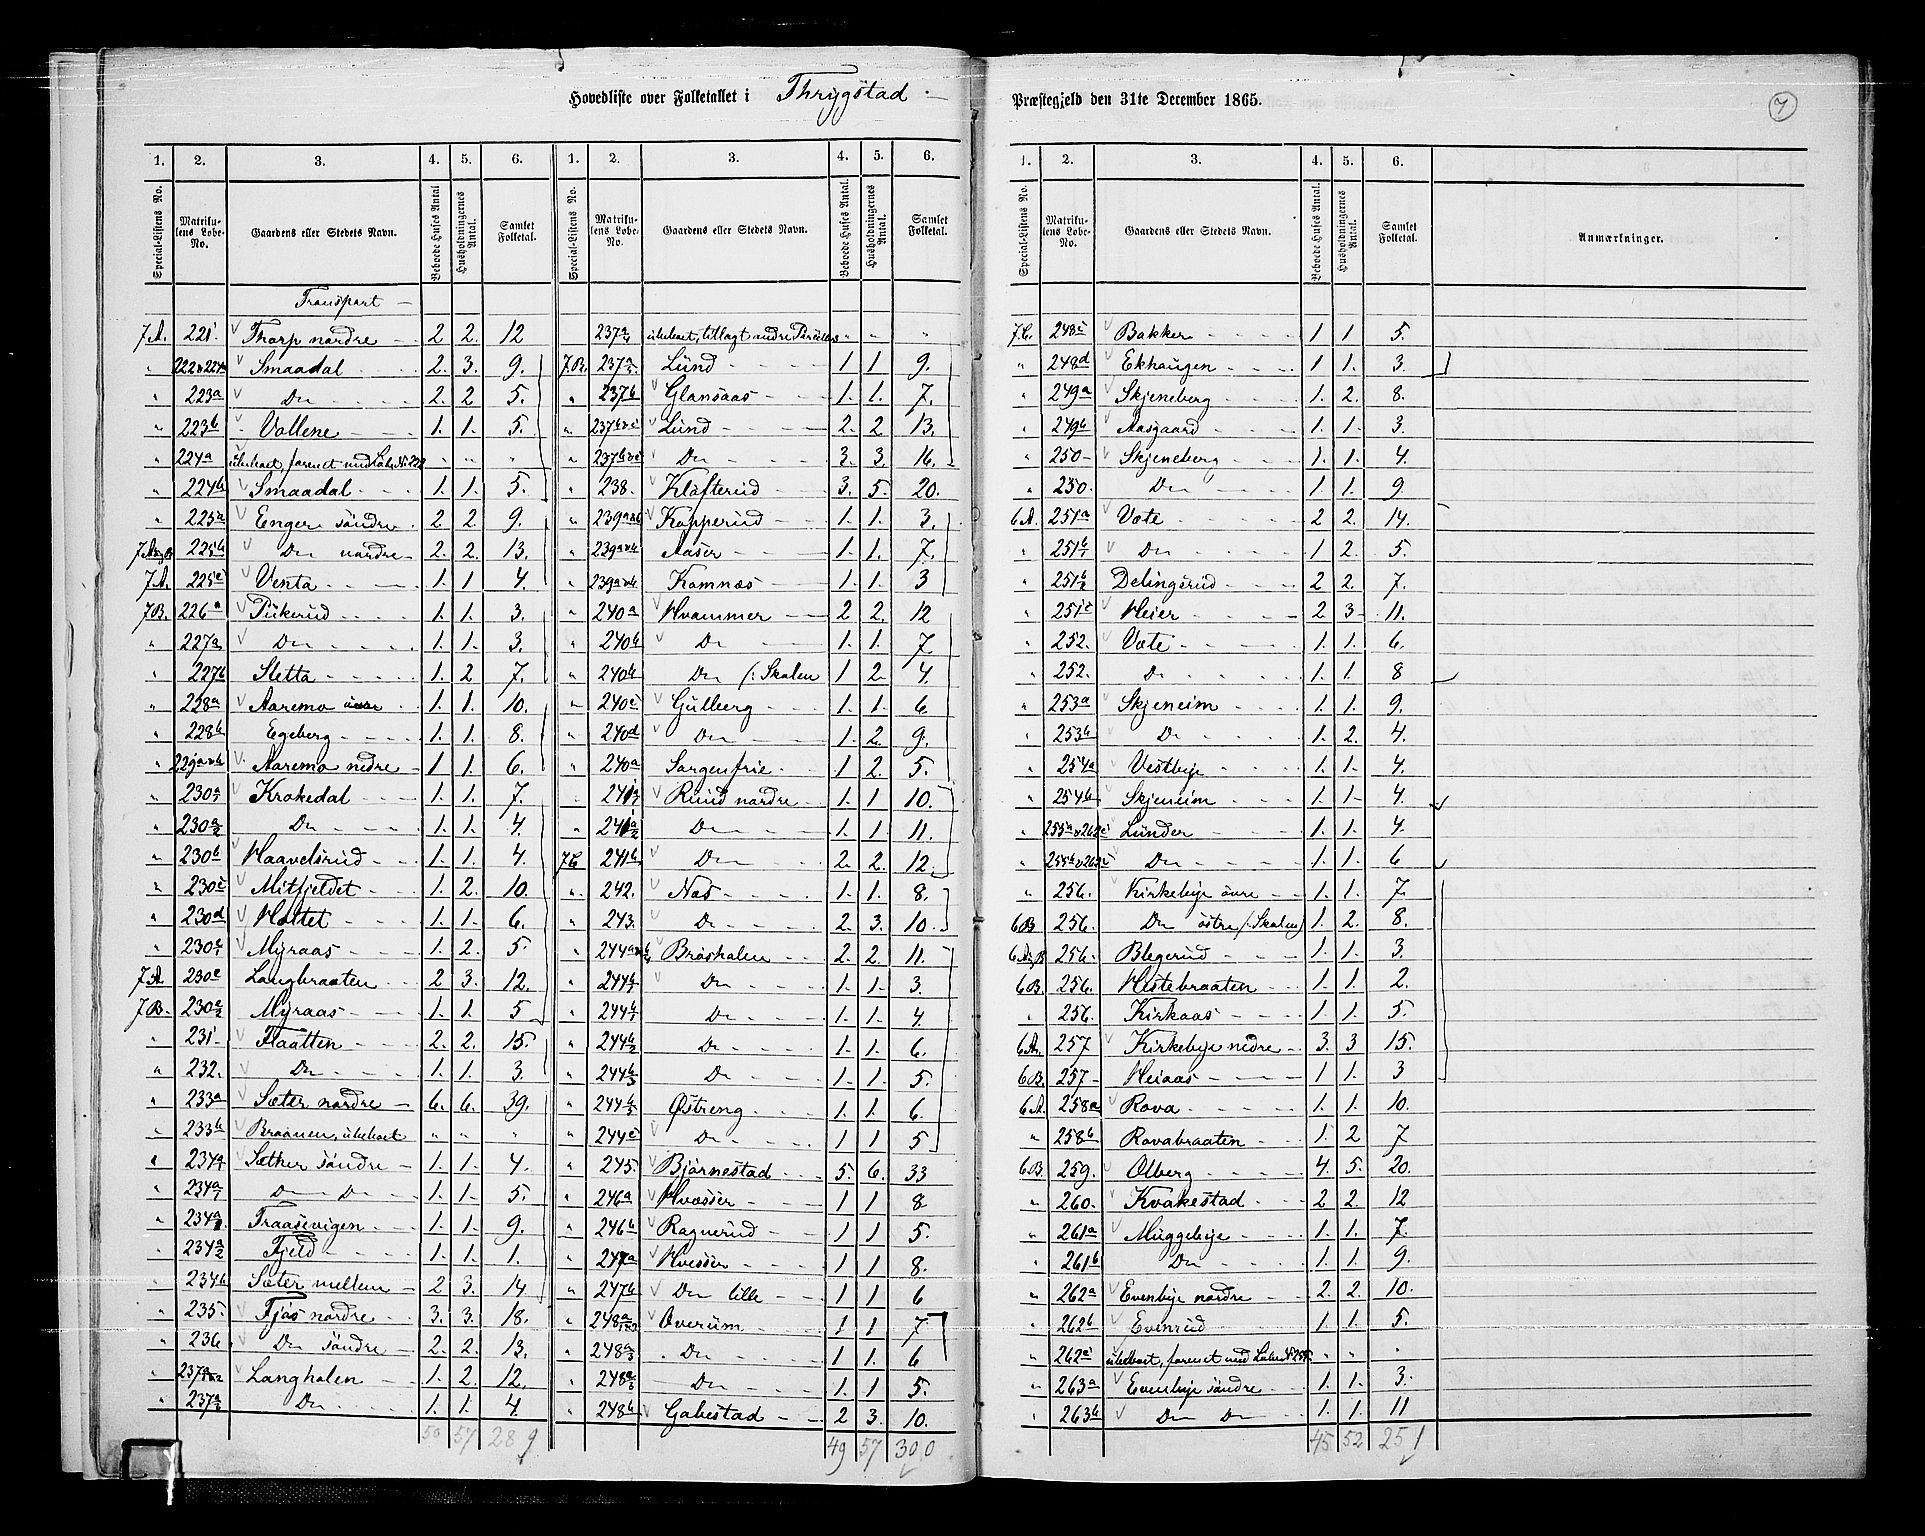 Hovedliste over Folketallet i Thrygstad Præstegjeld den 31te December 1865.
7
1. 2. 3. 4. 5. 6.
Special-Listens No. Matrikulens Løbe-No. Gaardens eller Stedets Navn. Beboede Huses Antal Husholdningernes Antal. Samlet Folketal.
Transport —
7A. 221 Thorp nordre 2 2. 12
" 222 & 224 Smaadal 2. 3. 9.
" 223a Do 2. 2 5.
" 223b Vollene 1. 1. 5.
" 224a ubeboet, forenet med Løbe No 222 " " "
" 224b Smaadal 1. 1. 5.
" 225a Enger söndre 2. 2. 9.
7A og B 225b Do nordre 2. 2. 13.
7A. 225c Venta 1. 1 4.
7B. 226a Pükerüd 1. 1. 3.
" 227a Do 1. 1. 3.
" 227b Sletta 1. 2 7.
" 228a Aaremo övre 1. 1. 10.
" 228b Egeberg 1. 1. 8.
" 229a&b Aaremo nedre 1 1. 6.
" 230a/1 Krokedal 1. 1. 7.
" 230a/2 Do 1. 1. 4.
" 230b Haavelsrüd 1. 1. 4.
" 230c Mitfjeldet 1. 2. 10.
" 230d Hottet 1. 1. 6.
" 230e/1 Myraas 1. 2. 5
7A. 230e Langbraaten 2 3. 12.
7B. 230e/2 Myraas 1. 1. 5
" 231 Flaatten 2. 2. 15.
" 232. Do 1. 1. 3.
" 233a Sæter nordre 6. 6. 39.
" 233b Braanen, ubeboet " " "
" 234a/1 Sæther söndre 1. 1. 4.
" 234a/1 Do Do 1. 1. 5.
" 234a Traasevigen 1. 1. 9.
" 234a/2 Fjeld 1. 1. 1.
" 234b Sæter mellem 2 3. 14
" 235 Fjøs nordre 3. 3. 18.
" 236 Do söndre 2. 2. 13.
" 237a Langholen 1. 2. 12.
" 237a/3 Do 1. 1. 4.
50 57 289
1. 2. 3. 4. 5. 6.
Special-Listens No. Matrikulens Løbe-No. Gaardens eller Stedets Navn. Beboede Huses Antal. Husholdningernes Antal. Samlet Folketal.
237a/4 ubeboet, tillagt andre Parceller " " "
7B. 237a/5 Lünd 1 1 9.
" 237b Glansaas 1. 1. 7.
" 237b&c Lünd 2. 2 13.
" 237b&c Do 3. 3. 16.
" 238. Kløfterüd 3. 5. 20.
" 239a&b Kopperüd 1. 1. 3.
" 239a&b Aaser 1. 1. 7.
" 239a&b Komnæs 1. 1. 3
" 240a Hvammer 2 2. 12
" 240b Do 1. 1. 7
" 240b Do (: Skolen 1 2. 4.
" 240c Gülberg 1. 1. 6.
" 240d Do 1. 2. 9.
" 240a Sorgenfrie 1 2. 5.
" 241a/1 Rüud nordre 1. 1 10.
" 241a/2 Do 1. 1. 11.
7C 241b Do 2. 2. 12.
" 242. Næs 1. 1. 8.
" 243. Do 2. 3. 10
" 244a Bröshalen 2. 2. 11.
" 244b Do 1. 1. 3.
" 244b/1 Do 1. 1. 4
" 244b/2 Do 1. 1. 6.
" 244b/3 Do 1. 1. 5.
" 244b/3 Østreng 1. 1. 6
" 244c Do 1 1 5
" 245. Bjørnestad 5. 6. 33
" 246a Hvæsser 1 1 8
" 246b Ragnerüd 1 1 5.
" 247a Hvesser 1 1 8.
" 247b Do lille 1 1 6
" 248a Overüm 1 1 7
" 248a/3 Do 1 1. 6
" 248a/3 Do 1. 1 5.
" 248b Gabestad 2 3. 10.
49 57 300
1. 2. 3. 4. 5. 6.
Special-Listens No. Matrikulens Løbe-No. Gaardens eller Stedets Navn. Beboede Huses Antal. Husholdningernes Antal. Samlet Folketal. Anmærkninger.
7C. 248c Bakker 1 1 5.
" 248d Ekhaugen 1 1. 3.
" 249a Skjeneberg 1. 2. 8.
" 249b Aasgaard 1. 1. 3.
" 250 Skjeneberg 1. 1. 4.
" 250. Do 1. 1. 9.
6A. 251a Væte 2 2. 14.
" 251b/1 Do 1 2. 5.
" 251b/2 Delingsrüd 2 2. 7.
" 251c Heier 2. 3 11.
" 252. Væte 1. 1. 6.
" 252. Do 1. 1. 8
" 253a Skjeneim 1. 1. 9.
" 253b Do 1. 2. 4.
" 254a Vestbye 1. 1. 4.
" 254b Skjeneim 1. 1 4.
" 255a & 262c Lünder 1. 1. 4.
" 255b & 262c Do 1. 1. 6
" 256. Kirkebye övre 1. 1. 7.
6B 256. Do östre (: Skolen) 1. 2. 8.
6A og B 256. Blegerüd 1. 1. 3.
6B. 256. Histebraaten 1. 1 2.
" 256. Kirkaas 1. 1. 5.
6A. 257 Kirkebye nedre 3. 3 15.
6B. 257 Heiaas 1 1. 3
6A. 258a Rova 1. 1. 10.
" 258b Rovabraaten 1. 2 7
6B. 259. Olberg 4. 5. 20.
" 260. Kvakestad 2 2. 12
" 261a Müggebye 1. 1. 7.
" 261b Do 1 1. 9.
" 262a Evenbye nordre 2. 2. 10.
" 262b Evenrüd 1. 1. 5.
" 262c ubeboet, forenet med Løbe No 255. " " "
" 263a Evenbye söndre 1. 1. 3.
" 263b Do Do 1. 1. 11
45 52 251